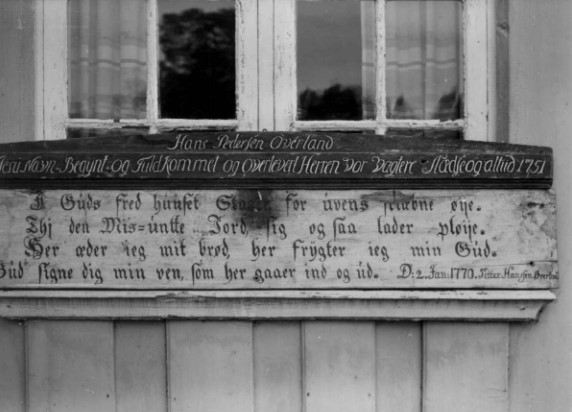 Hans Pedersen Overland
Jesu Navn Begynt og Fuldkommet og overlevert Herren vor Vogter Stædse og altiid 1751
I Guds fred huuset for uvens øye.
Thj den Mis-untte Jord, sig og saa lader pløije.
Her æder ieg mit brød, her frÿgter ieg min Gúd.
Gúd signe dig min ven, som her gaaer ind og úd. D: 2. Jan: 1770. Petter Hanssen Overland